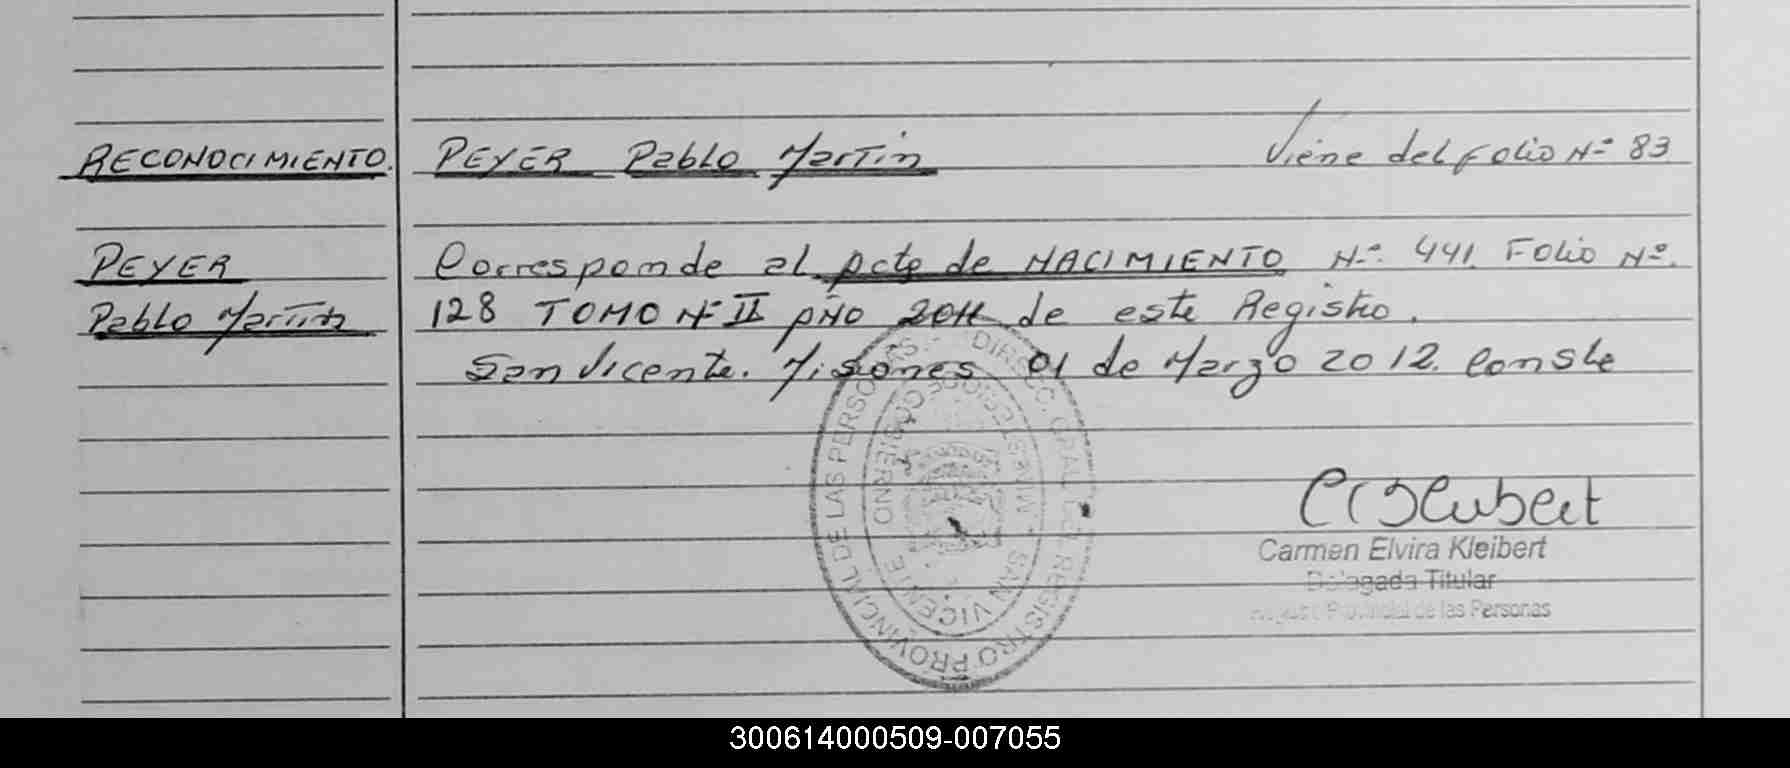 RECONOCIMIENTO. PEYER Pablo Martin Viene del Folio Nº 83
PEYER Corresponde al Acta de NACIMIENTO Nº. 441. FOLIO Nº.
Pablo Martin 128 TOMO Nº II AÑO 2011 de este Registro.
San Vicente. Misiones 01 de Marzo 2012. Conste
DIRECC. GRAL. DEL REGISTRO PROVINCIAL DE LAS PERSONAS
GOBIERNO
SAN VICENTE
Carmen Elvira Kleibert
Delegada Titular
Provincial de las Personas
300614000509-007055